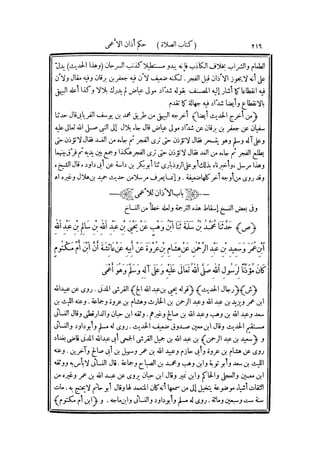 ٢١٦ (كتاب الصلاة) حكم أذان الأعمى
الطعام والشراب بخلاف الكاذب فإنه يبدو مستطيلا كذنب السرحان (وهذا الحديث) يدل
على أنه لايجوز الأذان قبل الفجر. لكنه ضعيف لأن فيه جعفر بن برقان وفيه مقال ولأن
فيه انقطاعا كما أشار إليه المصنف بقوله شداد مولى عياض لم يدرك بلالا وكذا أعله البيهقى
بالانقطاع وأيضا شداد فيه جهالة كما تقدم
(من أخرج الحديث أيضا) أخرجه البيهقى من طريق محمد بن يوسف الفريابى قال حدثنا
سفيان عن جعفر بن برقان عن شداد مولى عياض قال جاء بلال إلى النبى صلى الله تعالى عليه
وعلى آله وسلم وهو يتسحر فقال لاتؤذن حتى ترى الفجر ثم جاءه من الغد فقال لاتؤذن حتى
يطلع الفجر ثم جاءه من الغد فقال لاتؤذن حتى ترى الفجر هكذا وجمع بين يديه ثم فرق بينهما
وهذا مرسل
وقد روى من أوجه أخر كلها ضعيفة
باب الأذان للأعمى
وفى بعض النسخ إسقاط هذه الترجمة ولعله خطأ من النساخ
(ص) حَدَّثَنَا مُحَمَّدُ بْنُ سَلَمَةَ ثَنَا ابْنُ وَهْبٍ عَنْ يَحْيَى بْنِ عَبْدِ اللهِ بْنِ سَالِمِ بْنِ عَبْدِ اللهِ
ابْنِ عُمَرَ وَسَعِيدِ بْنِ عَبْدِ الرَّحْمَنِ عَنْ هِشَامِ بْنِ عُرْوَةَ عَنْ أَبِيهِ عَنْ عَائِشَةَ أَنَّ ابْنَ أُمِّ مَكْتُومٍ
كَانَ مُؤَذِّنًا لِرَسُولِ اللهِ صَلَّى اللهُ تَعَالَى عَلَيْهِ وَعَلَى آلِهِ وَسَلَّمَ وَهُوَ أَعْمَى
(ش) (رجال الحديث) (قوله يحيى بن عبد الله الخ) القرشى المدنى. روى عن عبيد الله
ابن عمر ويزيد بن عبد الله وعبد الرحمن بن الحارث وهشام بن عروة وجماعة. وعنه الليث بن
سعد وعبد الله بن وهب وعبد الله بن صالح وغيرهم. وثقه ابن حبان والدارقطنى وقال النسائى
مستقيم الحديث وقال ابن معين صدوق ضعيف الحديث. روى له مسلم وأبوداود والنسائى
و (سعيد بن عبد الرحمن) بن عبد الله بن جميل القرشى الجمحى أبى عبد الله المدنى قاضى بغداد
روى عن هشام بن عروة وأبى حازم وعبيد الله بن عمر وسهيل بن أبى صالح وآخرين. وعنه
الليث بن سعد وأبو توبة وابن وهب ومحمد بن الصباح وجماعة. قال النسائى لابأس به ووثقه
ابن معين والعجلى والحاكم وابن نمير وقال ابن حبان يروى عن عبيد الله بن عمر وغيره من
الثقات أشياء موضوعة يتخيل إلى من سمعها أنه كان المتعمد لها وقال أبو حاتم لايحتج به. مات
سنة ست وسبعين ومائة. روى له مسلم وأبوداود والنسائى وابن ماجه. و (ابن أم مكتوم)